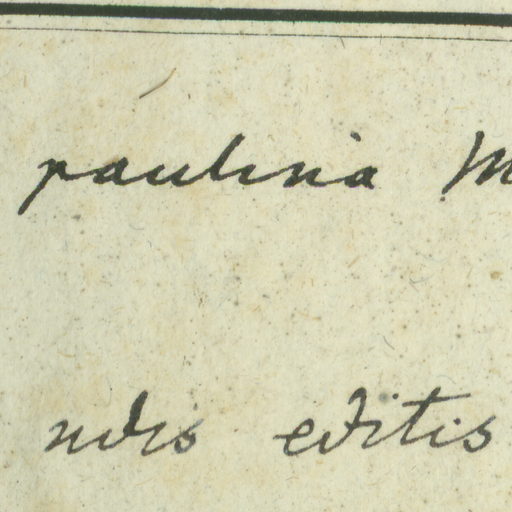 paulina M
ndis editis